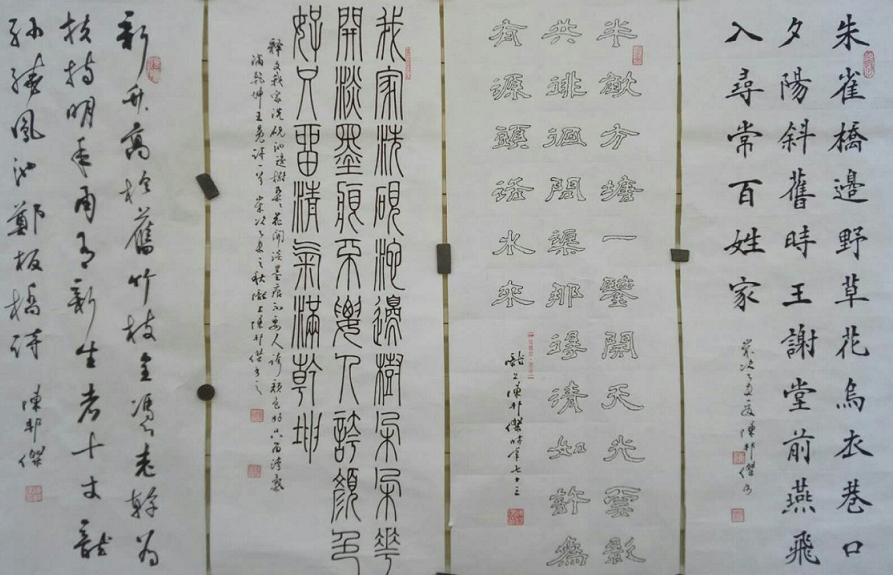 朱雀橋邊野草花烏衣巷口
夕陽斜舊時王謝堂前燕飛
入尋常百姓家
歲次丁酉夏陳邦傑書
半畝方塘一鑒開天光雲影
共徘徊問渠那得清如許為
有源頭活水來
陳邦傑時年七十三
我家洗硯池邊樹朵朵華
開淡墨痕不要人誇顏色
好只留清氣滿乾坤
釋文我家洗硯池邊樹朵朵花開淡墨痕不要人誇顏色好只留清氣
滿乾坤王冕詩一首歲次丁酉之秋上陳邦傑書之
新竹高於舊竹枝全憑老幹為
扶持明年再有新生者十丈龍
孫繞鳳池鄭板橋詩
陳邦傑